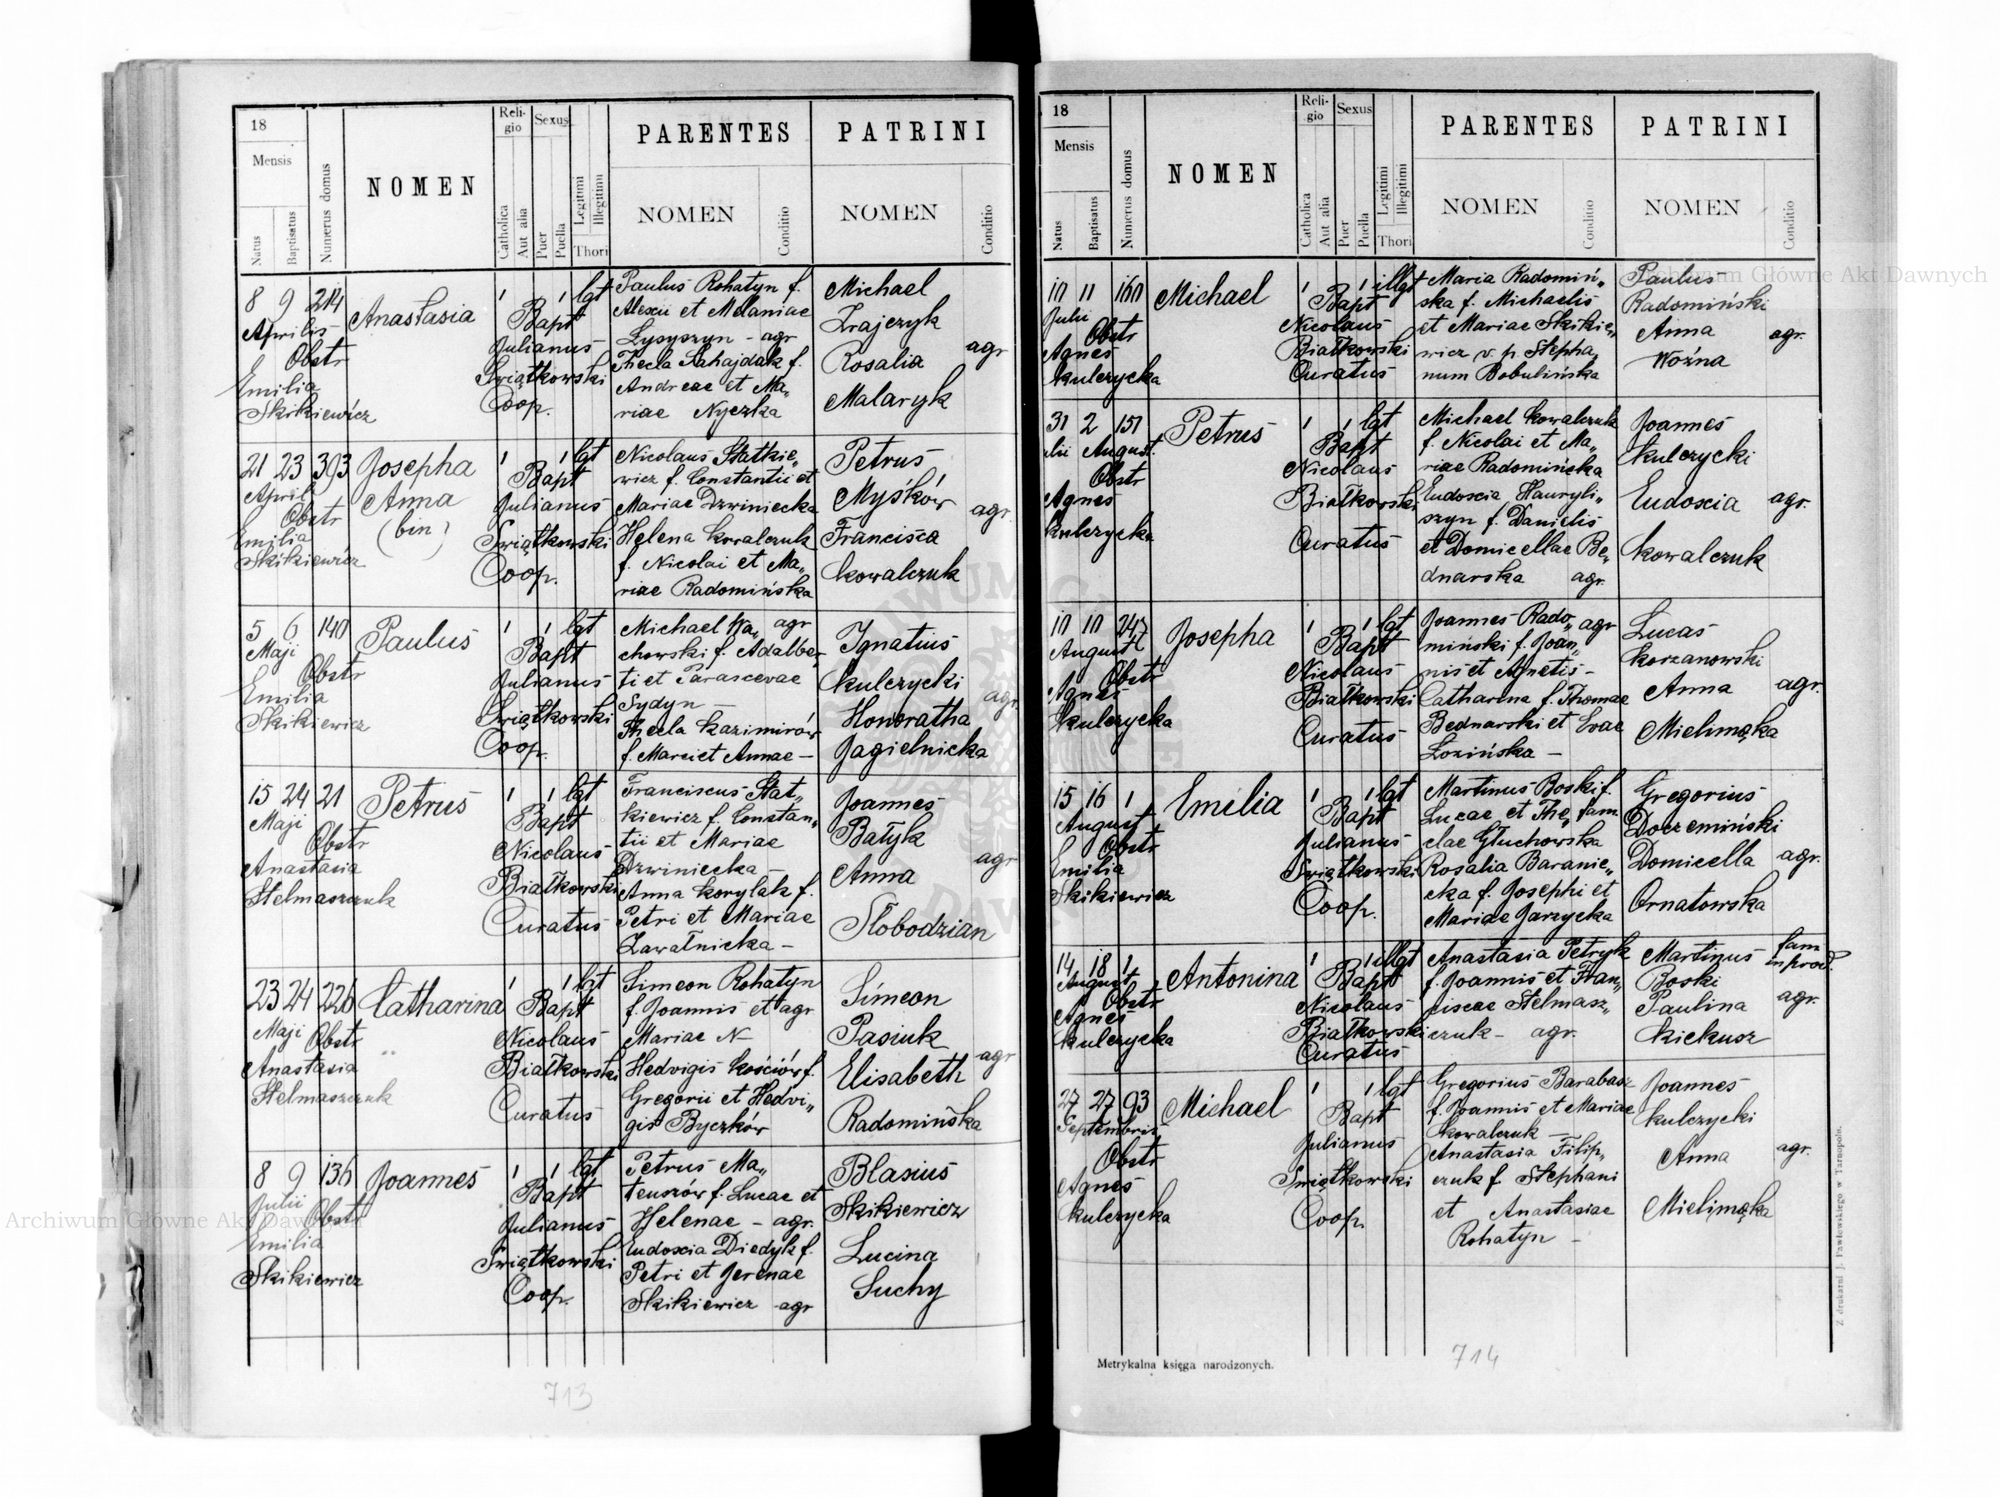 18
Mensis
Natus
Baptisatus
Numerus domus
NOMEN
Religio
Catholica
Aut alia
Sexus
Puer
Puella
Legitimi
Illegitimi
Thori
PARENTES
NOMEN
Conditio
PATRINI
NOMEN
Conditio
8 9 214
Aprilis
Obstr
Emilia
Skikiewicz
Anastasia
1 1 lgt
Bapt
Julianus
Świątkowski
Coop.
Paulus Rohatyn f.
Alexii et Melaniae
Lysyszyn - agr
Thecla Sahajdak f.
Andreae et Ma„
riae Nyczka
Michael
Zrajczyk
Rosalia
Malaryk
agr
21 23 393
April
Obstr
Emilia
Skikiewicz
Josepha
Anna
(bin)
1 1 lgt
Bapt
Julianus
Świątkowski
Coop.
Nicolaus Statkie„
wicz f. Constantii et
Mariae Dzwiniecka
Helena Kowalczuk
f. Nicolai et Ma„
riae Radomińska
Petrus
Myśków
Francisca
Kowalczuk
agr.
5 6 140
Maji
Obstr
Emilia
Skikiewicz
Paulus
1 1 lgt
Bapt
Julianus
Świątkowski
Coop.
Michael Wa„ agr
chowski f. Adalber„
ti et Parascevae
Sydyn —
Thecla Kazimirów
f. Marci et Annae —
Ignatius
Kulczycki
Honoratha
Jagielnicka
agr.
15 24 21
Maji
Obstr
Anastasia
Stelmaszczuk
Petrus
1 1 lgt
Bapt
Nicolaus
Białkowski
Curatus
Franciscus Stat„
kiewicz f. Constan„
tii et Mariae
Dzwiniecka —
Anna Korylak f.
Petri et Mariae
Zawałnicka —
Joannes
Batyk
Anna
Słobodzian
agr
23 24 226
Maji
Obstr
Anastasia
Stelmaszczuk
Catharina
1 1 lgt
Bapt
Nicolaus
Białkowski
Curatus
Simeon Rohatyn
f. Joannis et agr
Mariae N—
Hedvigis Kościów f.
Gregorii et Hedvi„
gis Byczków
Simeon
Pasiuk
Elisabeth
Radomińska
agr
8 9 136
Julii
Obstr
Emilia
Skikiewicz
Joannes
1 1 lgt
Bapt
Julianus
Świątkowski
Coop.
Petrus Ma„
teuszów f. Lucae et
Helenae - agr.
Eudoxia Diedyk f.
Petri et Jerenae
Skikiewicz agr
Blasius
Skikiewicz
Lucina
Suchy
713
18
Mensis
Natus
Baptisatus
Numerus domus
NOMEN
Religio
Catholica
Aut alia
Sexus
Puer
Puella
Legitimi
Illegitimi
Thori
PARENTES
NOMEN
Conditio
PATRINI
NOMEN
Conditio
10 11 160
Julii
Obstr
Agnes
Kulczycka
Michael
1 1 illgt
Bapt
Nicolaus
Białkowski
Curatus
Maria Radomiń„
ska f. Michaelis
et Mariae Skikie„
wicz v. p. Stepha„
num Bobulińska
Paulus
Radomiński
Anna
Woźna
agr.
31 2 151
August.
Obstr
Agnes
Kulczycka
Petrus
1 1 lgt
Bapt
Nicolaus
Białkowski
Curatus
Michael Kowalczuk
f. Nicolai et Ma„
riae Radomińska
Eudoxia Hauryli„
szyn f. Danielis
et Domicellae Be„
dnarska agr.
Joannes
Kulczycki
Eudoxia
Kowalczuk
agr.
10 10 247
Augusti
Obstr
Agnes
Kulczycka
Josepha
1 1 lgt
Bapt
Nicolaus
Białkowski
Curatus
Joannes Rado„ agr
miński f. Joan„
nis et Agnetis -
Catharina f. Thomae
Bednarski et Evae
Lozińska —
Lucas
Korzanowski
Anna
Mielimąka
agr.
15 16 1
August
Obstr
Emilia
Skikiewicz
Emilia
1 1 lgt
Bapt
Julianus
Świątkowski
Coop.
Martinus Boski f.
Lucae et The„ fam
clae Głuchowska
Rosalia Baranie„
cka f. Josephi et
Mariae Jarzycka
Gregorius
Doczemiński
Domicella
Ornatowska
agr.
14 18 1
August
Obstr
Agnes
Kulczycka
Antonina
1 1 illgt
Bapt
Nicolaus
Białkowski
Curatus
Anastasia Petryk
f. Joannis et Fran„
ciscae Stelmasz„
czuk - agr.
Martinus
Boski
Paulina
Kiekusz
fam
in prod.
agr.
27 27 93
Septembris
Obstr
Agnes
Kulczycka
Michael
1 1 lgt
Bapt
Julianus
Świątkowski
Coop.
Gregorius Barabasz
f. Joannis et Mariae
Kowalczuk —
Anastasia Filip„
czuk f. Stephani
et Anastasiae
Rohatyn —
Joannes
Kulczycki
Anna
Mielimąka
agr.
Metrykalna księga narodzonych.
714
Z drukarni J. Pawłowskiego w Tarnopolu.
Archiwum Główne Akt Dawnych
Archiwum Główne Akt Dawnych